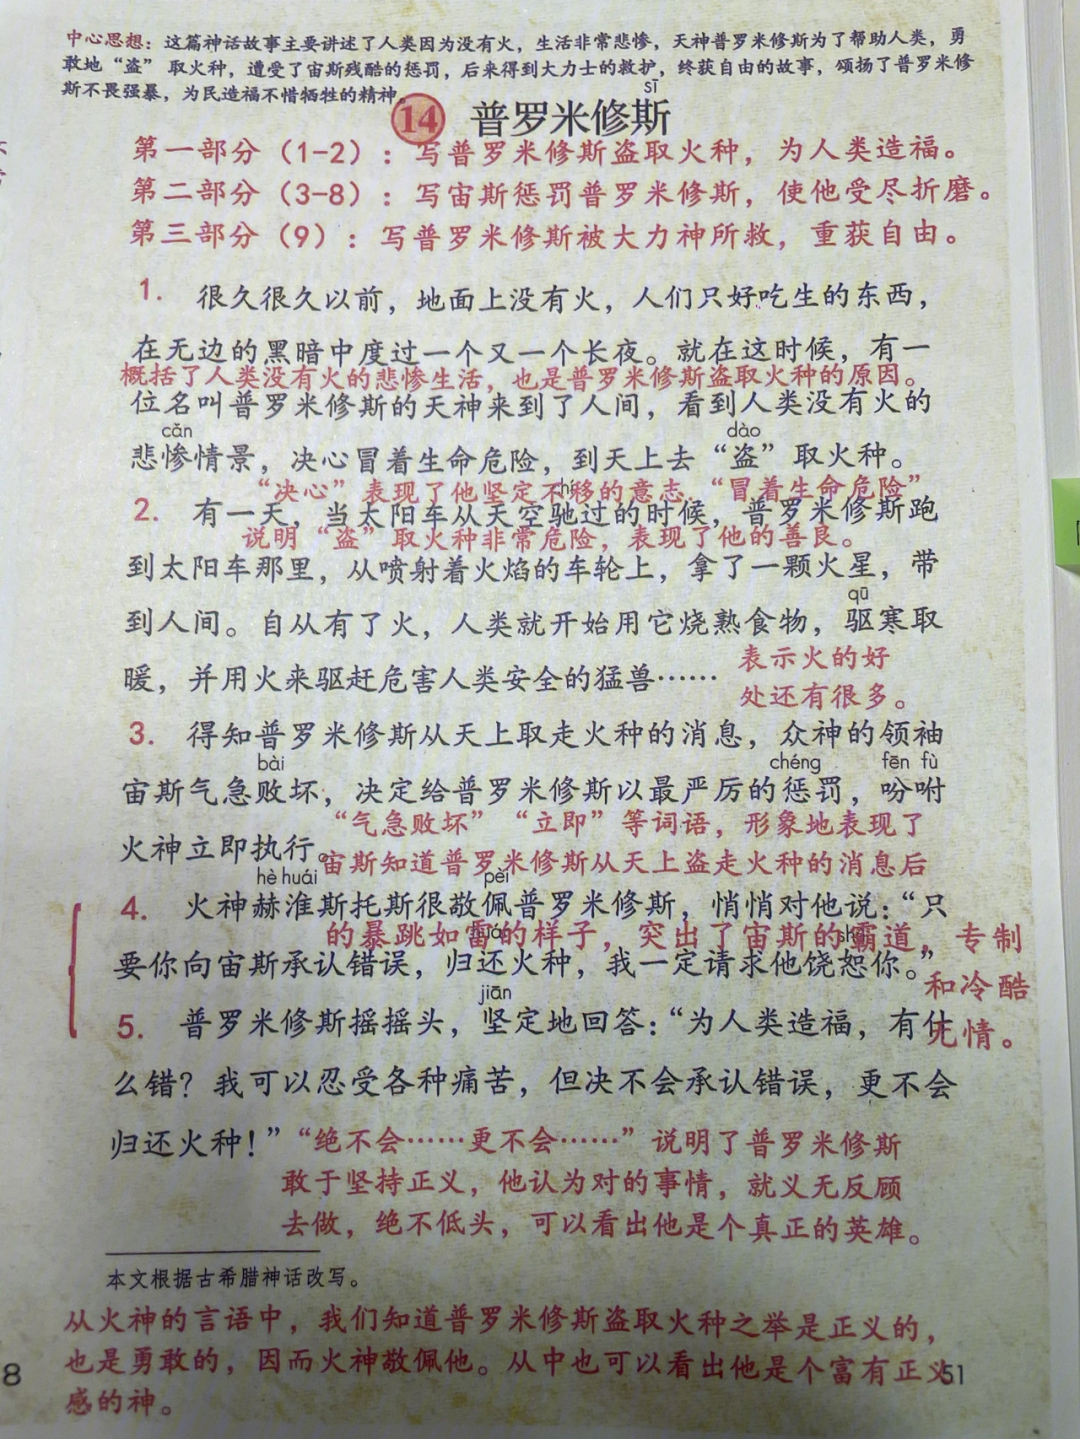 中心思想：这篇神话故事主要讲述了人类因为没有火，生活非常悲惨，天神普罗米修斯为了帮助人类，勇
敢地“盗”取火种，遭受了宙斯残酷的惩罚，后来得到大力士的救护，终获自由的故事，颂扬了普罗米修
斯不畏强暴，为民造福不惜牺牲的精神。
sī
14 普罗米修斯
第一部分（1-2）：写普罗米修斯盗取火种，为人类造福。
第二部分（3-8）：写宙斯惩罚普罗米修斯，使他受尽折磨。
第三部分（9）：写普罗米修斯被大力神所救，重获自由。
1. 很久很久以前，地面上没有火，人们只好吃生的东西，
在无边的黑暗中度过一个又一个长夜。就在这时候，有一
概括了人类没有火的悲惨生活，也是普罗米修斯盗取火种的原因。
位名叫普罗米修斯的天神来到了人间，看到人类没有火的
cǎn dào
悲惨情景，决心冒着生命危险，到天上去“盗”取火种。
“决心”表现了他坚定不移的意志，“冒着生命危险”
2. 有一天，当太阳车从天空驰过的时候，普罗米修斯跑
说明“盗”取火种非常危险，表现了他的善良。
到太阳车那里，从喷射着火焰的车轮上，拿了一颗火星，带
qū
到人间。自从有了火，人类就开始用它烧熟食物，驱寒取
暖，并用火来驱赶危害人类安全的猛兽……
表示火的好
处还有很多。
3. 得知普罗米修斯从天上取走火种的消息，众神的领袖
bài chéng fēn fù
宙斯气急败坏，决定给普罗米修斯以最严厉的惩罚，吩咐
“气急败坏”“立即”等词语，形象地表现了
火神立即执行。
宙斯知道普罗米修斯从天上盗走火种的消息后
hè huái pèi
4. 火神赫淮斯托斯很敬佩普罗米修斯，悄悄对他说：“只
的暴跳如雷的样子，突出了宙斯的霸道，专制
要你向宙斯承认错误，归还火种，我一定请求他饶恕你。”
和冷酷
jiān
5. 普罗米修斯摇摇头，坚定地回答：“为人类造福，有什
无情。
么错？我可以忍受各种痛苦，但决不会承认错误，更不会
归还火种！”
“绝不会……更不会……”说明了普罗米修斯
敢于坚持正义，他认为对的事情，就义无反顾
去做，绝不低头，可以看出他是个真正的英雄。
本文根据古希腊神话改写。
从火神的言语中，我们知道普罗米修斯盗取火种之举是正义的，
也是勇敢的，因而火神敬佩他。从中也可以看出他是个富有正义
感的神。
51
8